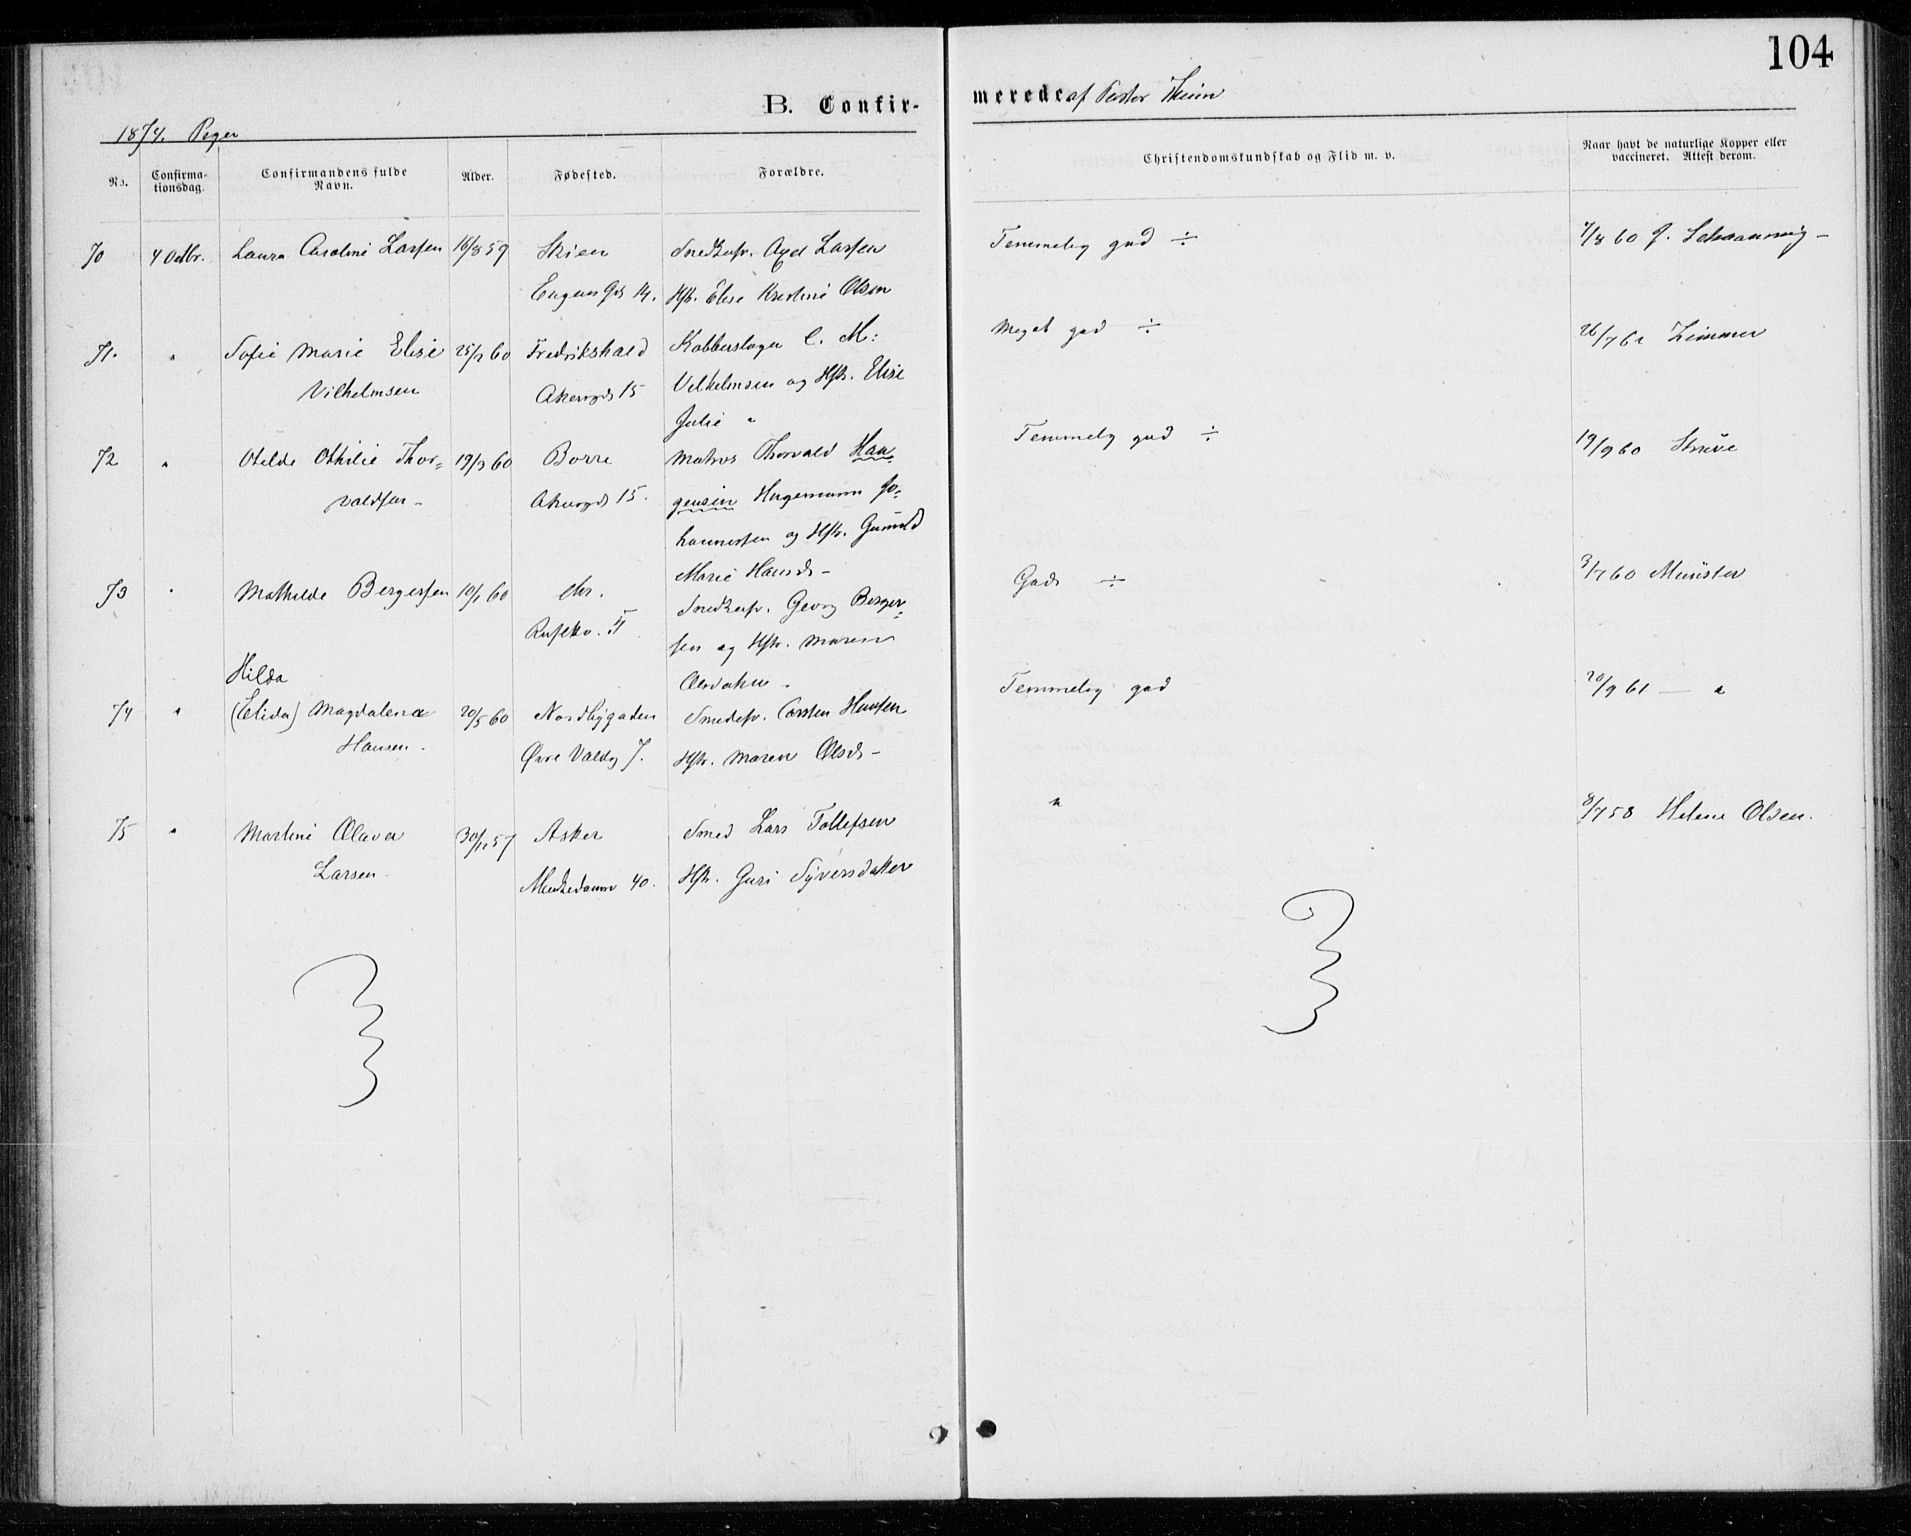 104
B. Confir-
merede af Pastor Heim
1874. Piger
No.
Confirma-
tionsdag.
Confirmandens fulde
Navn.
Alder.
Fødested.
Forældre.
Christendomskundskab og Flid m. v.
Naar havt de naturlige Kopper eller
vaccineret. Attest derom.
70 4 Octbr. Laura Caroline Larsen 16/8 59 Skien Snedkersv. Axel Larsen Temmelig god ÷ 7/8 60 J. Schaanning -
14. Hst. Elise Kristine Olsen
71. " Sofie Marie Elise 25/2 60 Fredrikshald Kobberslager C. M: Meget god ÷ 26/7 61 Zimmer
Vilhelmsen Akersgd 15 Vilhelmsen og Hst. Elise
Julie "
72 " Otilde Othilie Thor= 19/3 60 Borre Matros Thorvald Haa Temmelig god ÷ 19/9 60 Strüve
valdsen - Akersgd 15. gensen Hagemann Jo=
hannessen og Hst. Gunild
Marie Hansd. -
73 " Mathilde Bergersen 10/1 60 Chr. Snedkersv. Georg Berger= God ÷ 3/7 60 Münster
sen og Hst. Maren
Hilda
74 " (Elida) Magdalena 20/5 60 Nordbygaden Smedesv. Carsten Hansen Temmelig god 20/9 61 — "
Hansen. Øvre Voldg 7. Hst. Maren Olsd. -
75 " Martine Olava 30/11 57 Asker Smed Lars Tollefsen " 8/7 58 Helene Olsen.
Larsen. Munkedamsv 40. Hst. Guri Syversdatter